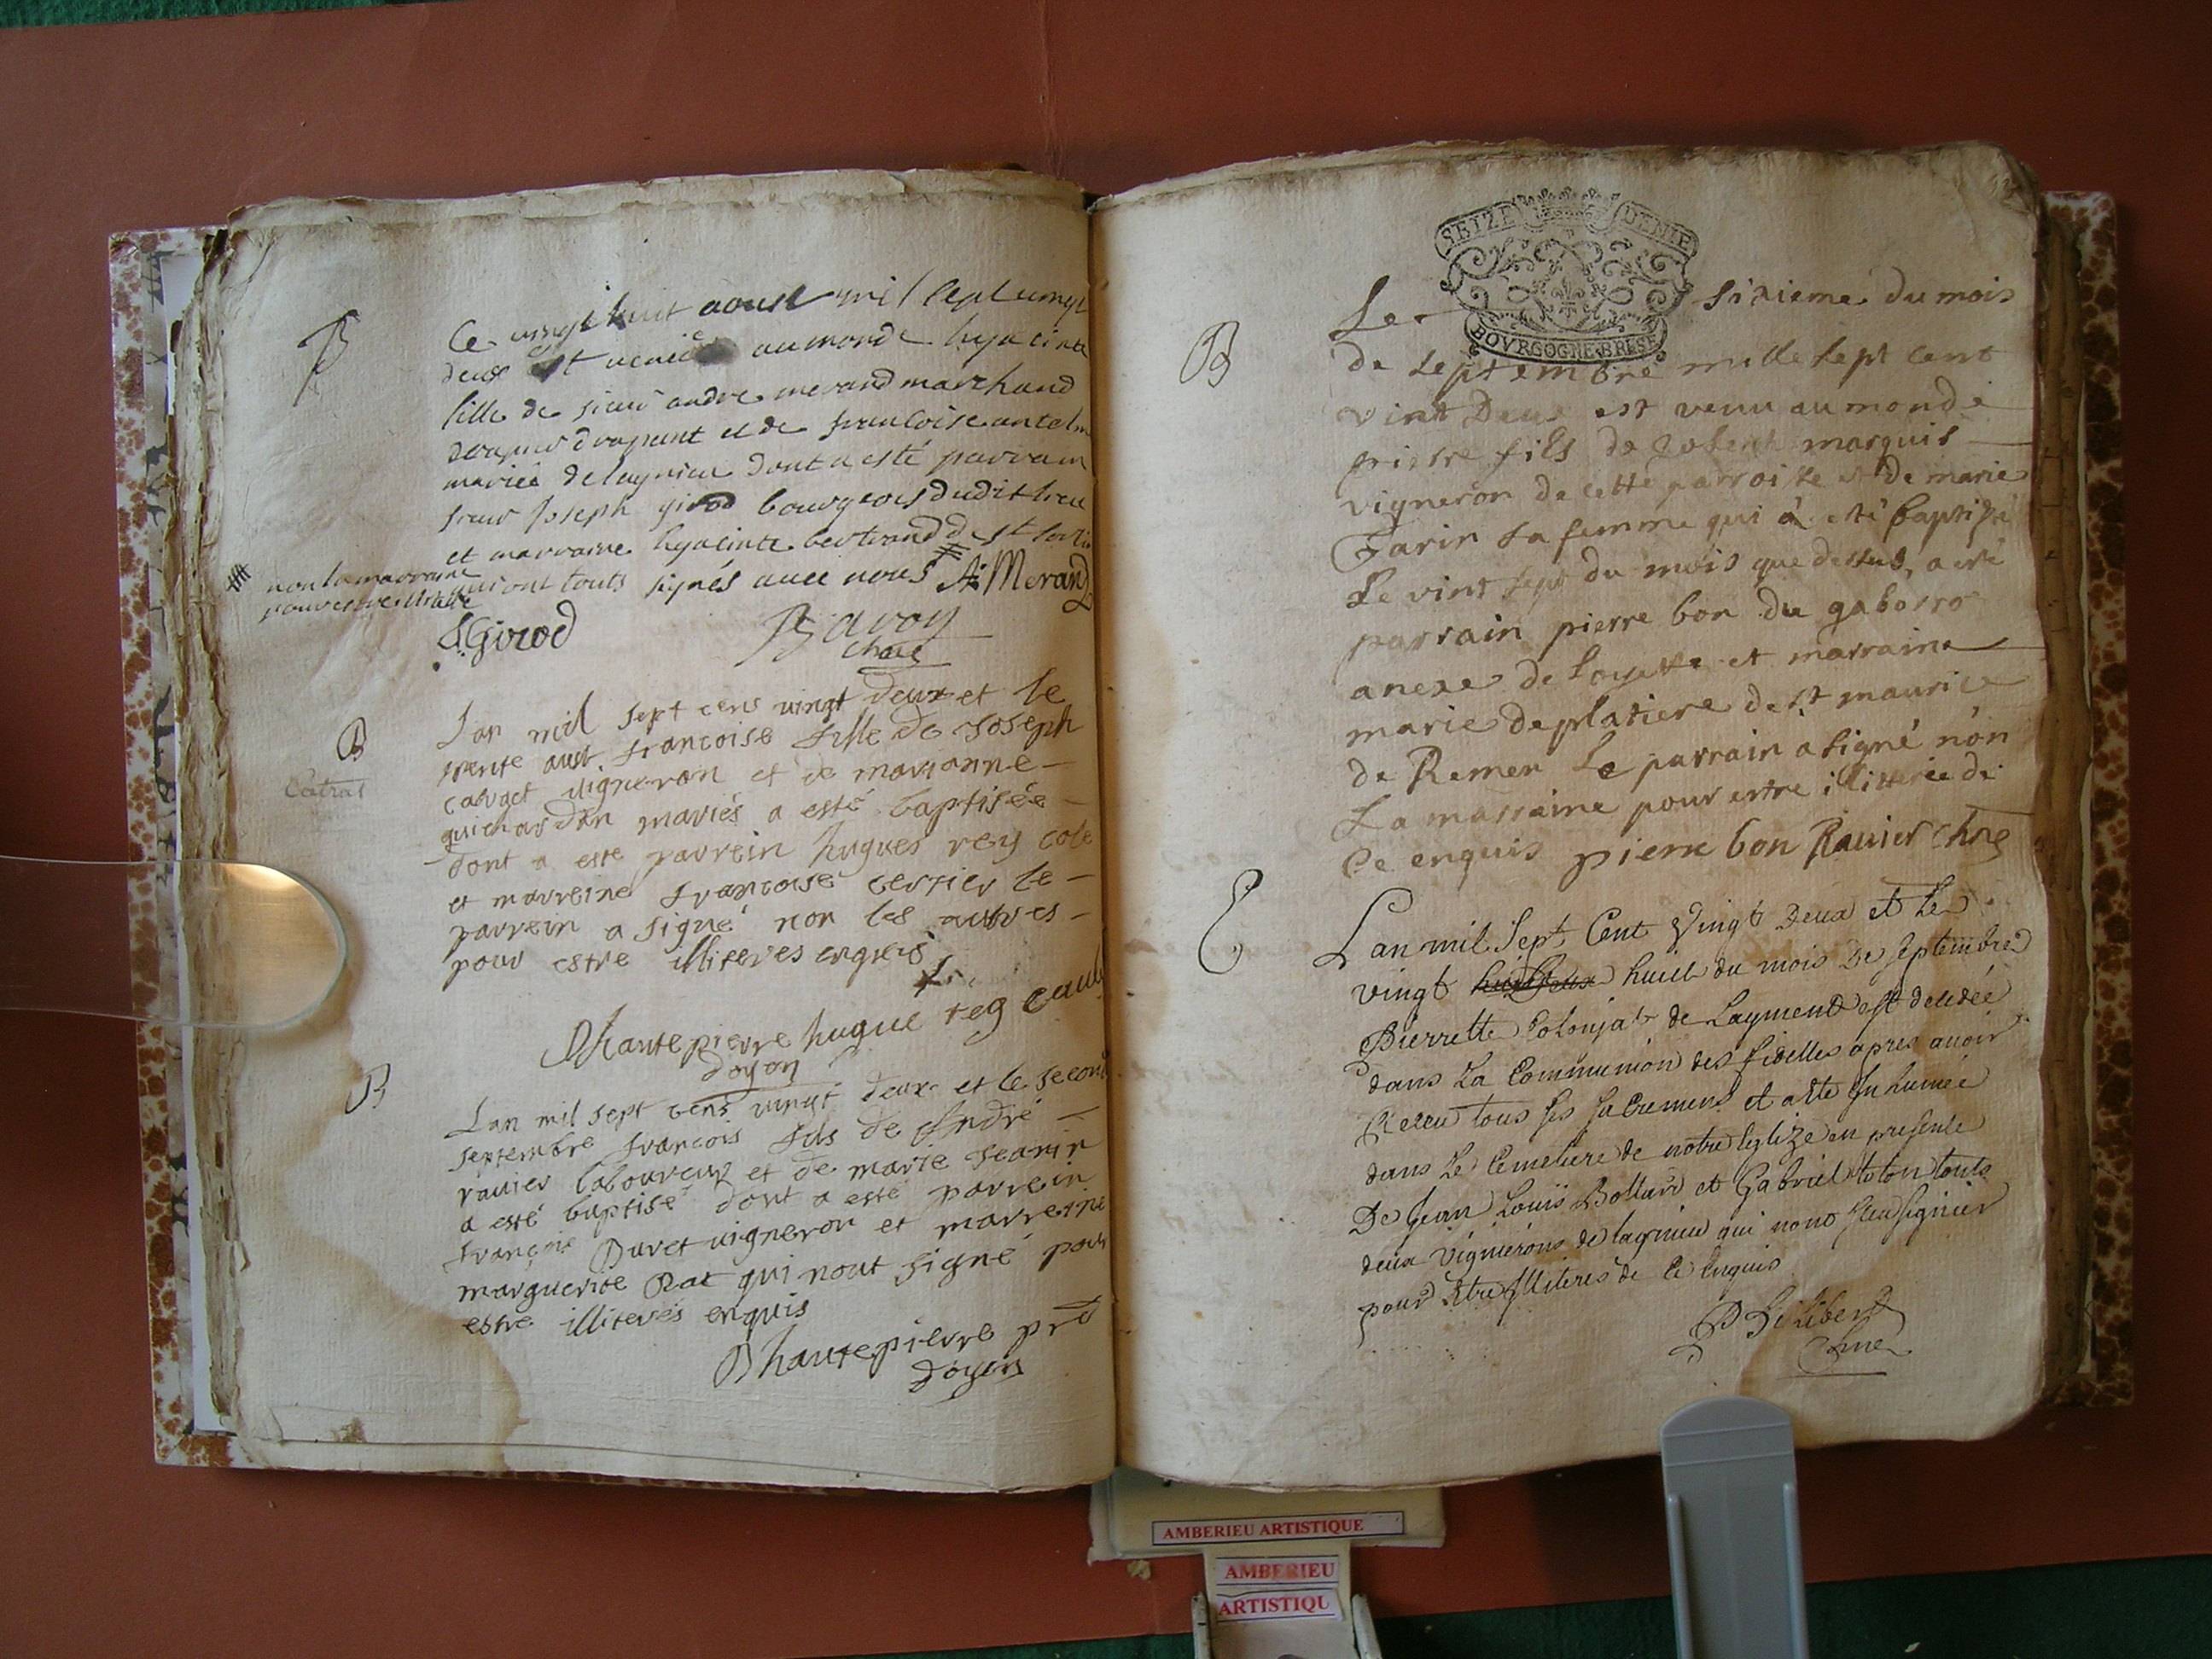 B
Ce vingt huit aoust mil sept vingt
deux est venüe au monde hyacinte
fille de sieur andre merand marchand
drapier drapant et de francoise antelm
mariés de lagnieu dont a esté parrain
sieur Joseph girod bourgeois dudit lieu
et marraine hyacinte bertrand de st
non la marraine
pour estre illitere
qui ont touts signés avec nous A Merand
J Girod
Bavoy
chne
B
Lan mil sept cens vingt deux et le
trente aust francoise fille de Joseph
vigneron et de marianne
guichardon mariés a esté baptisée
dont a esté parrein hugues rey
et marreine francoise le
parrein a signé non les autres
pour estre illiteres enquis
Dhautepierre hugue rey
doyen
B
Lan mil sept cens vingt deux et le second
septembre francois fils de André
ravier laboureur et de marie Jeanin
a esté baptisé dont a esté parrein
françois Buret vigneron et marreine
marguerite Rat qui nont signé pour
estre illiterés enquis
Dhautepierre prê
doyen
SEIZE DENIE
BOVRGOGNE BRESE
B
Le sixieme du mois
de septembre mille sept cent
vint Deux est venu au monde
pierre fils de marquis
vigneron de cette parroisse et de marie
Farin sa femme qui á esté baptisé
Le vint sept du mois que dessus, a esté
parrain pierre bon du
anexe de Loyette et marraine
marie deplatiere de st maurice
de Remen Le parrain a signé nón
La marraine pour estre illiterée de
Ce enquis pierre bon Ravier chne
E
Lan mil Sept Cent Vingt Deux et Le
vingt huict du mois de septembre
Pierrette de Layment est decedée
dans La Communion des fidelles apres avoir
Receu tous ses sacremens et a este Inhumée
dans Le Cemetiere de notre Eglize en presence
De Jean Louis Bottard et Gabriel toton touts
deux Vignierons de lagnieu qui nont sceu signier
pour Etre Illiteres de Ce Enquis
Philibert
chne
AMBERIEU ARTISTIQUE
AMBERIEU
ARTISTIQU